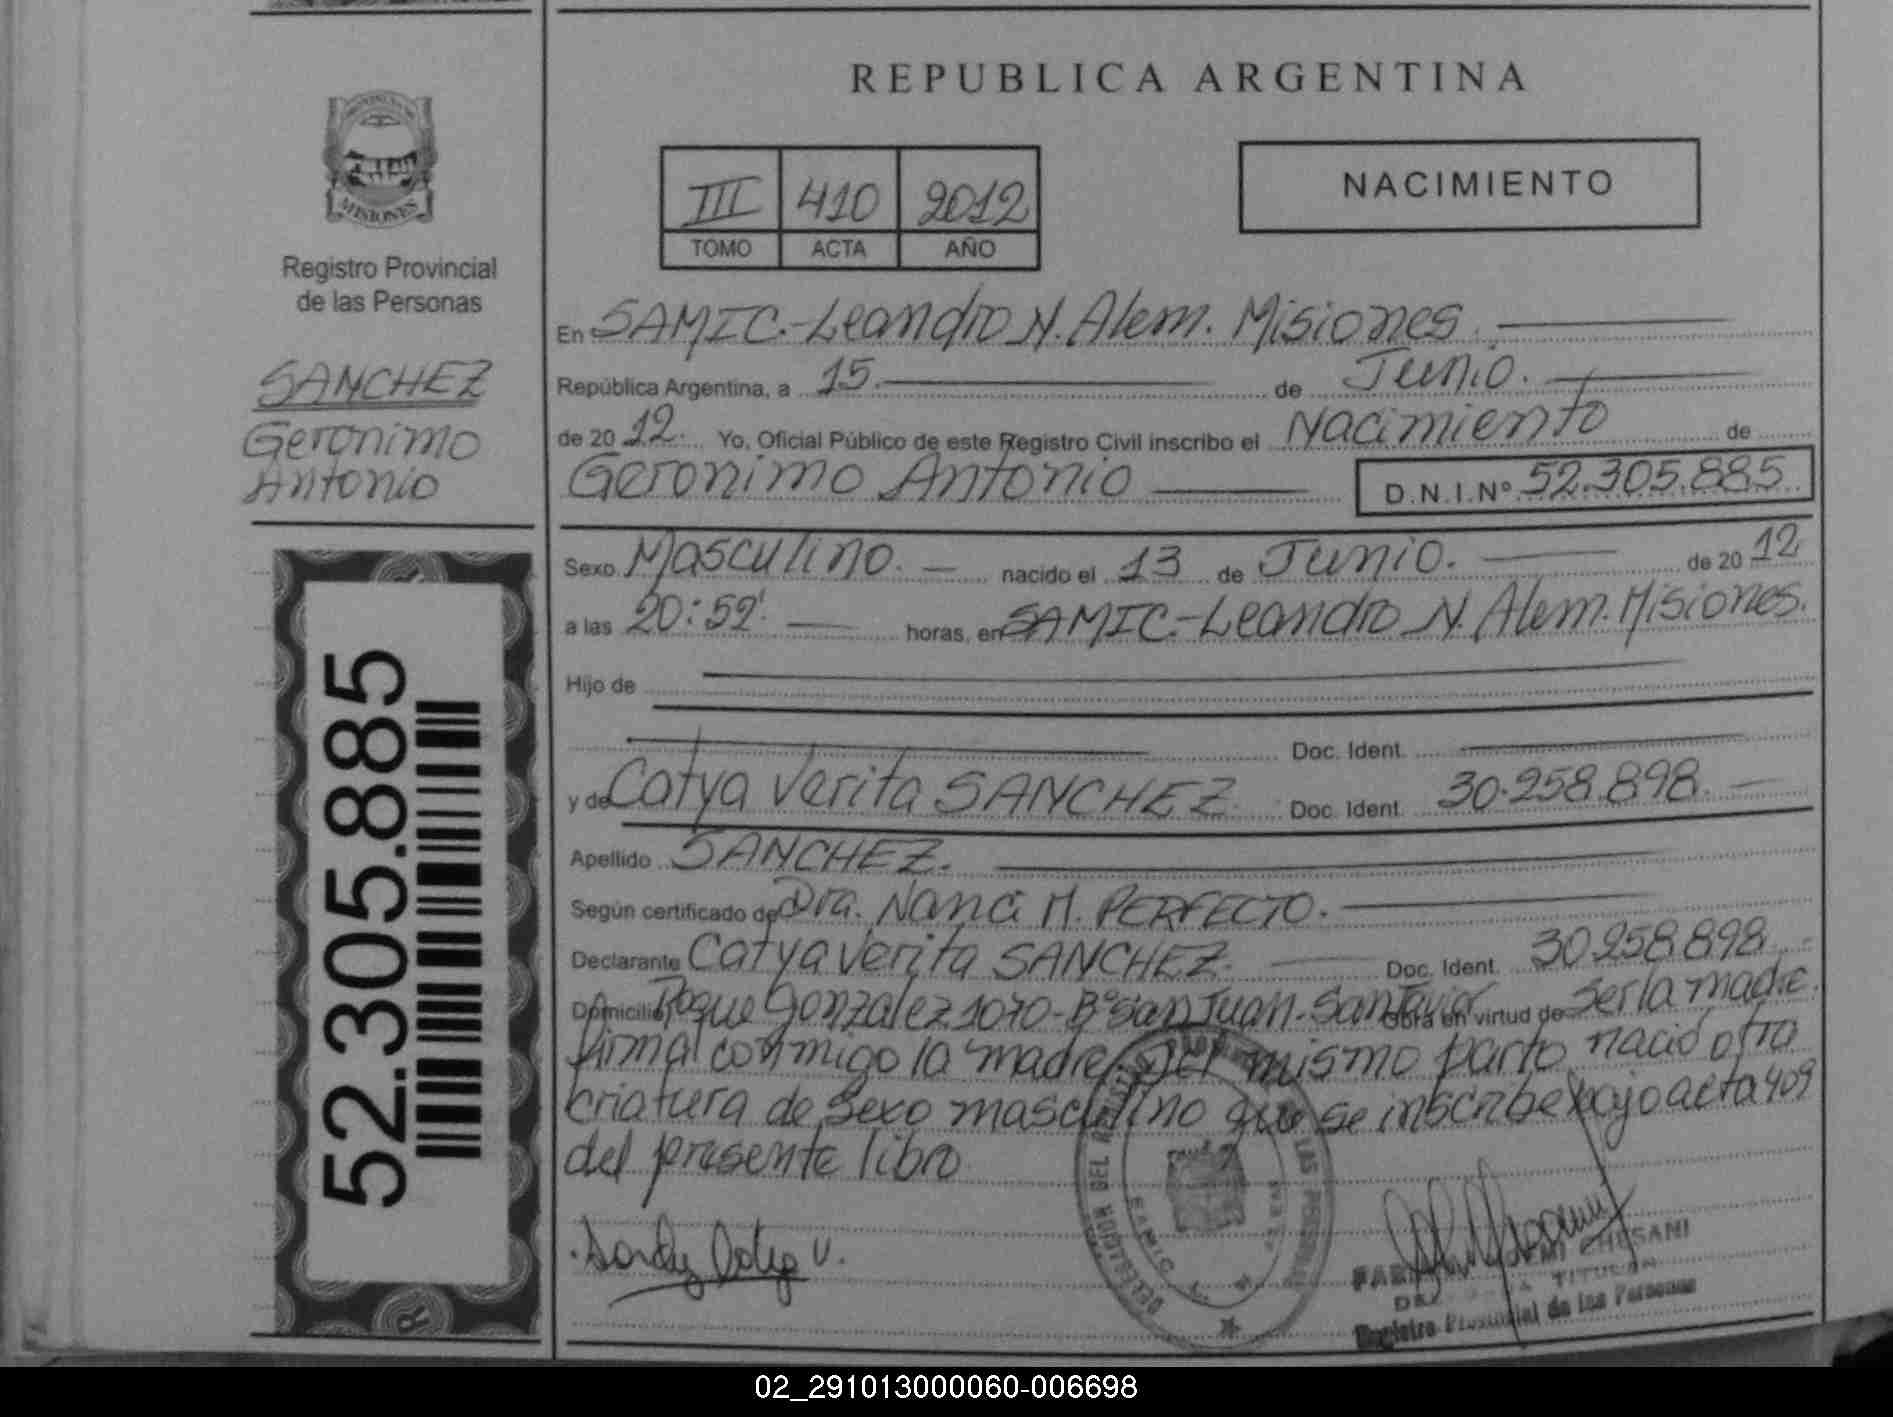 REPUBLICA ARGENTINA
MISIONES
Registro Provincial
de las Personas
SANCHEZ
Geronimo
Antonio
52.305.885
III 410 2012
TOMO ACTA AÑO
NACIMIENTO
En SAMIC.-Leandro N. Alem. Misiones.
República Argentina, a 15. de Junio.
de 20 12. Yo, Oficial Público de este Registro Civil inscribo el Nacimiento de
Geronimo Antonio D.N.I.Nº 52.305.885
Sexo Masculino. nacido el 13 de Junio. de 20 12
a las 20:52'. horas, en SAMIC.-Leandro N. Alem. Misiones.
Hijo de
Doc. Ident.
y de Catya Verita SANCHEZ. Doc. Ident. 30.258.898.
Apellido SANCHEZ.
Según certificado de Dra. Nanci M. PERFECTO.
Declarante Catya Verita SANCHEZ. Doc. Ident. 30.258.898
Domicilio Roque Gonzalez 1070-Bº San Juan. San Javier Obra en virtud de ser la madre.
firma conmigo la madre. Del mismo parto nació otra
criatura de sexo masculino que se inscribe bajo acta 409
del presente libro.
DELEGACION DEL LAS PERSONAS
SAMIC
CHESANI
TITULAR
Registro Provincial de las Personas
02_291013000060-006698